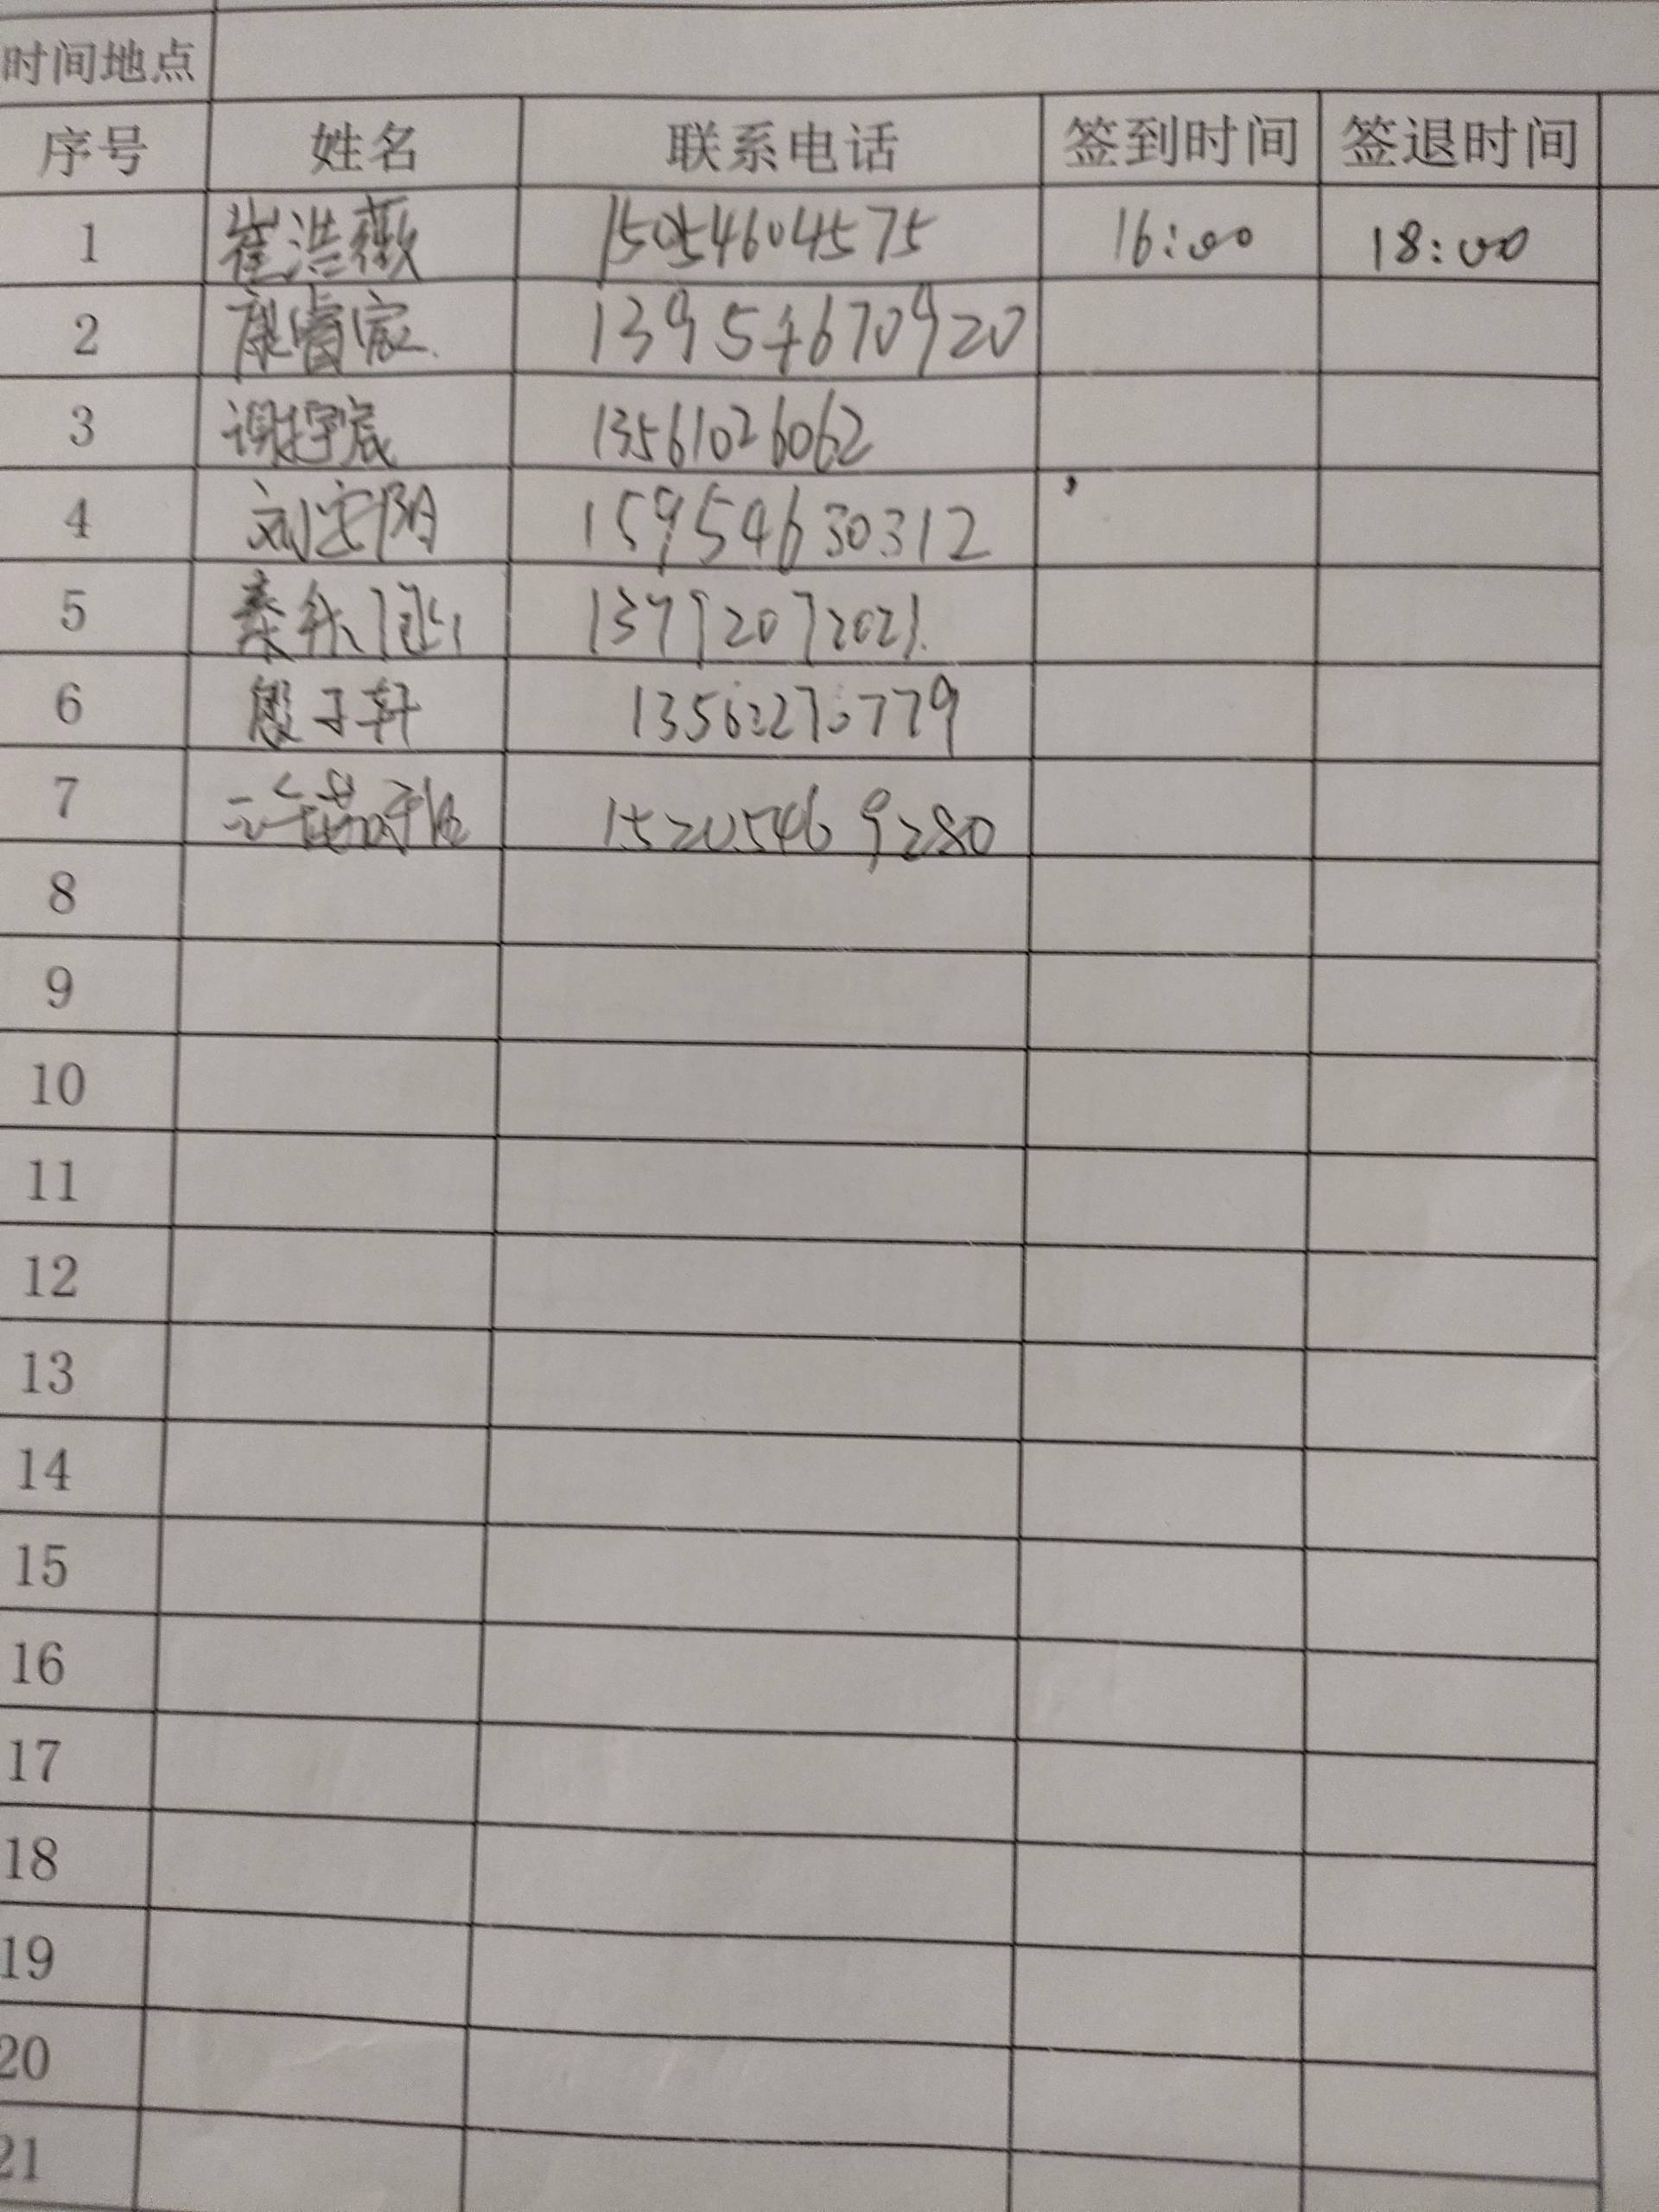 时间地点
序号 姓名 联系电话 签到时间 签退时间
1 崔洪薇 15054604575 16:00 18:00
2 康睿宸 13954670920
3 谢梓宸 13561026062
4 刘宇阳 15954630312
5 秦 13792072021.
6 殷子轩 13562276779
7 15205469280
8
9
10
11
12
13
14
15
16
17
18
19
20
21